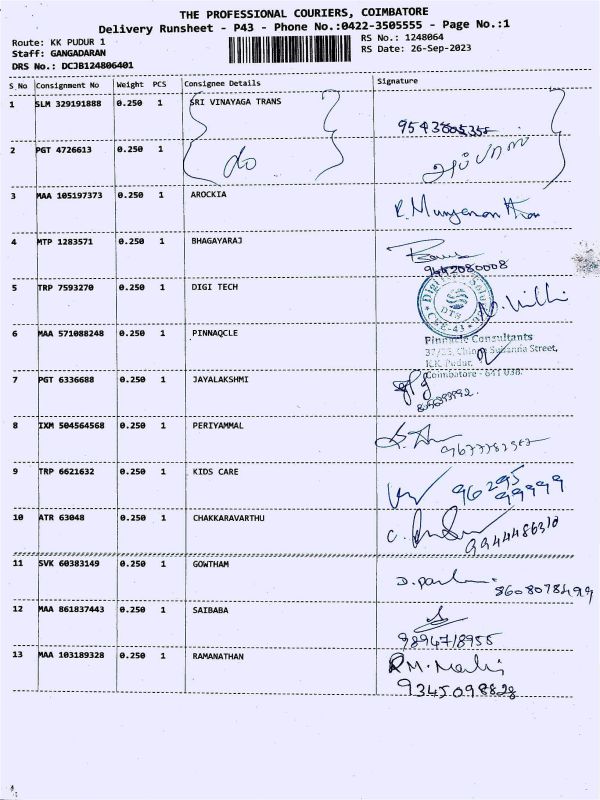 THE PROFESSIONAL COURIERS, COIMBATORE
Delivery Runsheet - P43 - Phone No.:0422-3505555 - Page No.:1
Route: KK PUDUR 1
Staff: GANGADARAN
DRS No.: DCJB124806401
RS No.: 1248064
RS Date: 26-Sep-2023
S_No Consignment No Weight PCS Consignee Details Signature
1 SLM 329191888 0.250 1 SRI VINAYAGA TRANS
2 PGT 4726613 0.250 1 do
3 MAA 105197373 0.250 1 AROCKIA
4 MTP 1283571 0.250 1 BHAGAYARAJ
9442080008
5 TRP 7593270 0.250 1 DIGI TECH
6 MAA 571088248 0.250 1 PINNAQCLE
Pinnacle Consultants
Street,
K.K. Pudur,
Coimbatore - 641 038.
7 PGT 6336688 0.250 1 JAYALAKSHMI
8 IXM 504564568 0.250 1 PERIYAMMAL
9 TRP 6621632 0.250 1 KIDS CARE
96295
99999
10 ATR 63048 0.250 1 CHAKKARAVARTHU
9944486310
11 SVK 60383149 0.250 1 GOWTHAM
8608078499
12 MAA 861837443 0.250 1 SAIBABA
9894718955
13 MAA 103189328 0.250 1 RAMANATHAN
9345098828